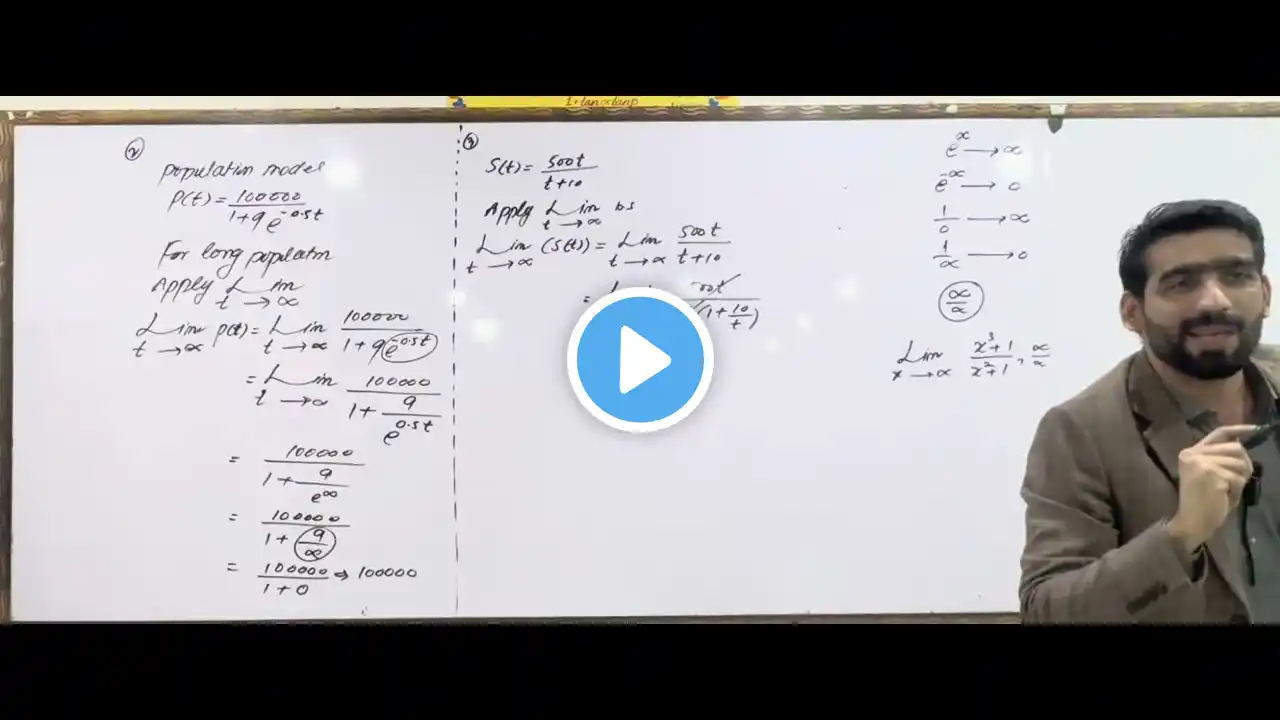 1+tanαtanβ
②
population model
P(t) = 100000 / 1+9e^-0.5t
For long populatn
Apply Lim t→∞
Lim t→∞ P(t) = Lim t→∞ 100000 / 1+9e^-0.5t
= Lim t→∞ 100000 / 1+ 9/e^0.5t
= 100000 / 1+ 9/e^∞
= 100000 / 1+ 9/∞
= 100000 / 1+0 → 100000
S(t) = 500t / t+10
Apply Lim t→∞ bs
Lim t→∞ (S(t)) = Lim t→∞ 500t / t+10
= 00t / (1+ 10/t)
e^∞ → ∞
e^-∞ → 0
1/0 → ∞
1/∞ → 0
∞/∞
Lim x→∞ x³+1 / x²+1, ∞/∞